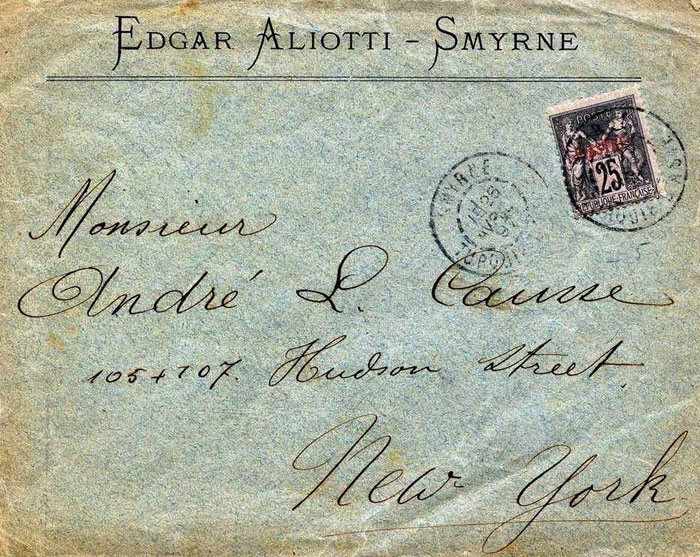 EDGAR ALIOTTI - SMYRNE
POSTE
25
REPUBLIQUE-FRANÇAISE
SMYRNE
Monsieur
André L. Causse
105+107. Hudson Street.
New York